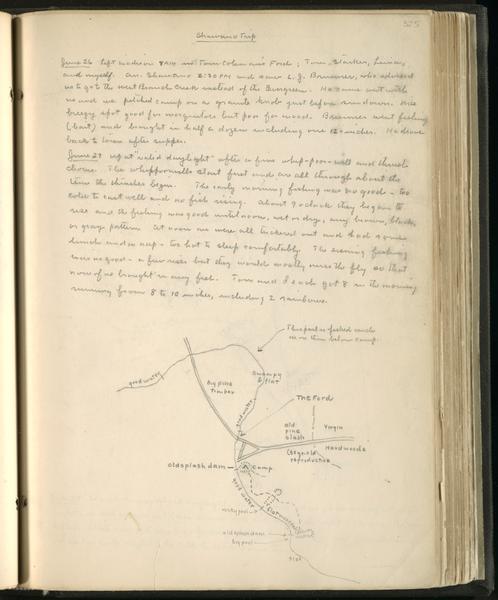 325
Shawano Trip
June 26 Left Madison 8 AM in Tom Coleman's Ford; Tom, Starker, Lema,
and myself. Arr. Shawano 2:30 PM and saw L.J. Brunner, who advised
us to go to the west branch creek instead of the Evergreen. He came out with
us and we pitched camp on a granite knob just before sundown. Nice
breezy spot good for mosquitoes but poor for wood. Brunner went fishing
(bait) and brought in half a dozen including one 12 incher. He drove
back to town after supper.
June 27 up at "naled daylight" after a fine whip-poor-will and thrush
chorus. The whippoorwills start first and are all through about the
time the thrushes begin. The early morning fishing was no good - too
cold to cast well and no fish rising. About 9 oclock they began to
rise and the fishing was good until noon, wet or dry, any brown, black,
or gray pattern. At noon we were all tuckered out and had a nice
lunch and a nap - too hot to sleep comfortably. The evening fishing
was no good - a few rises but they would mostly miss the fly so that
none of us brought in any fish. Tom and I each got 8 in the morning
running from 8 to 10 inches, including 2 rainbows.
This part is fished much
more than below camp
good water
Big pine
timber
Swampy
& flat
good water
The Ford
old
pine
slash
Virgin
Hardwoods
(Good
reproduction
old splash dam
camp
good water
rocky pool
old splash dam
big pool
flat